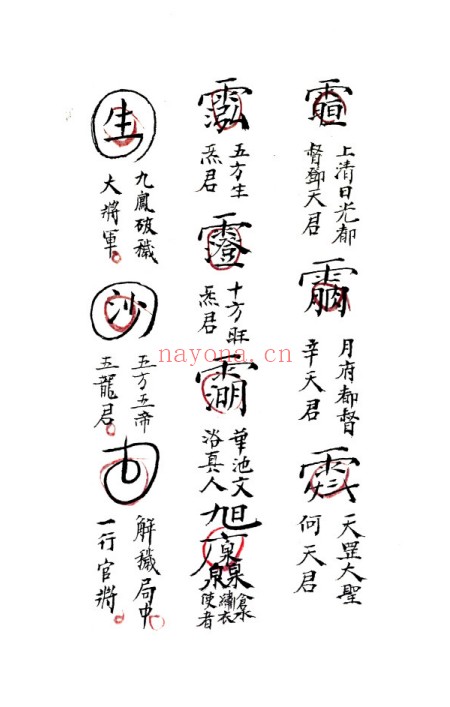 上清日光都
督鄧天君
月府都督
辛天君
天罡大聖
何天君
五方生
炁君
十方旺
炁君
華池文
浴真人
繡衣
使者
生
九鳳破穢
大將軍
沙
五方五帝
五龍君
解穢局中
一行官將
nayona.cn